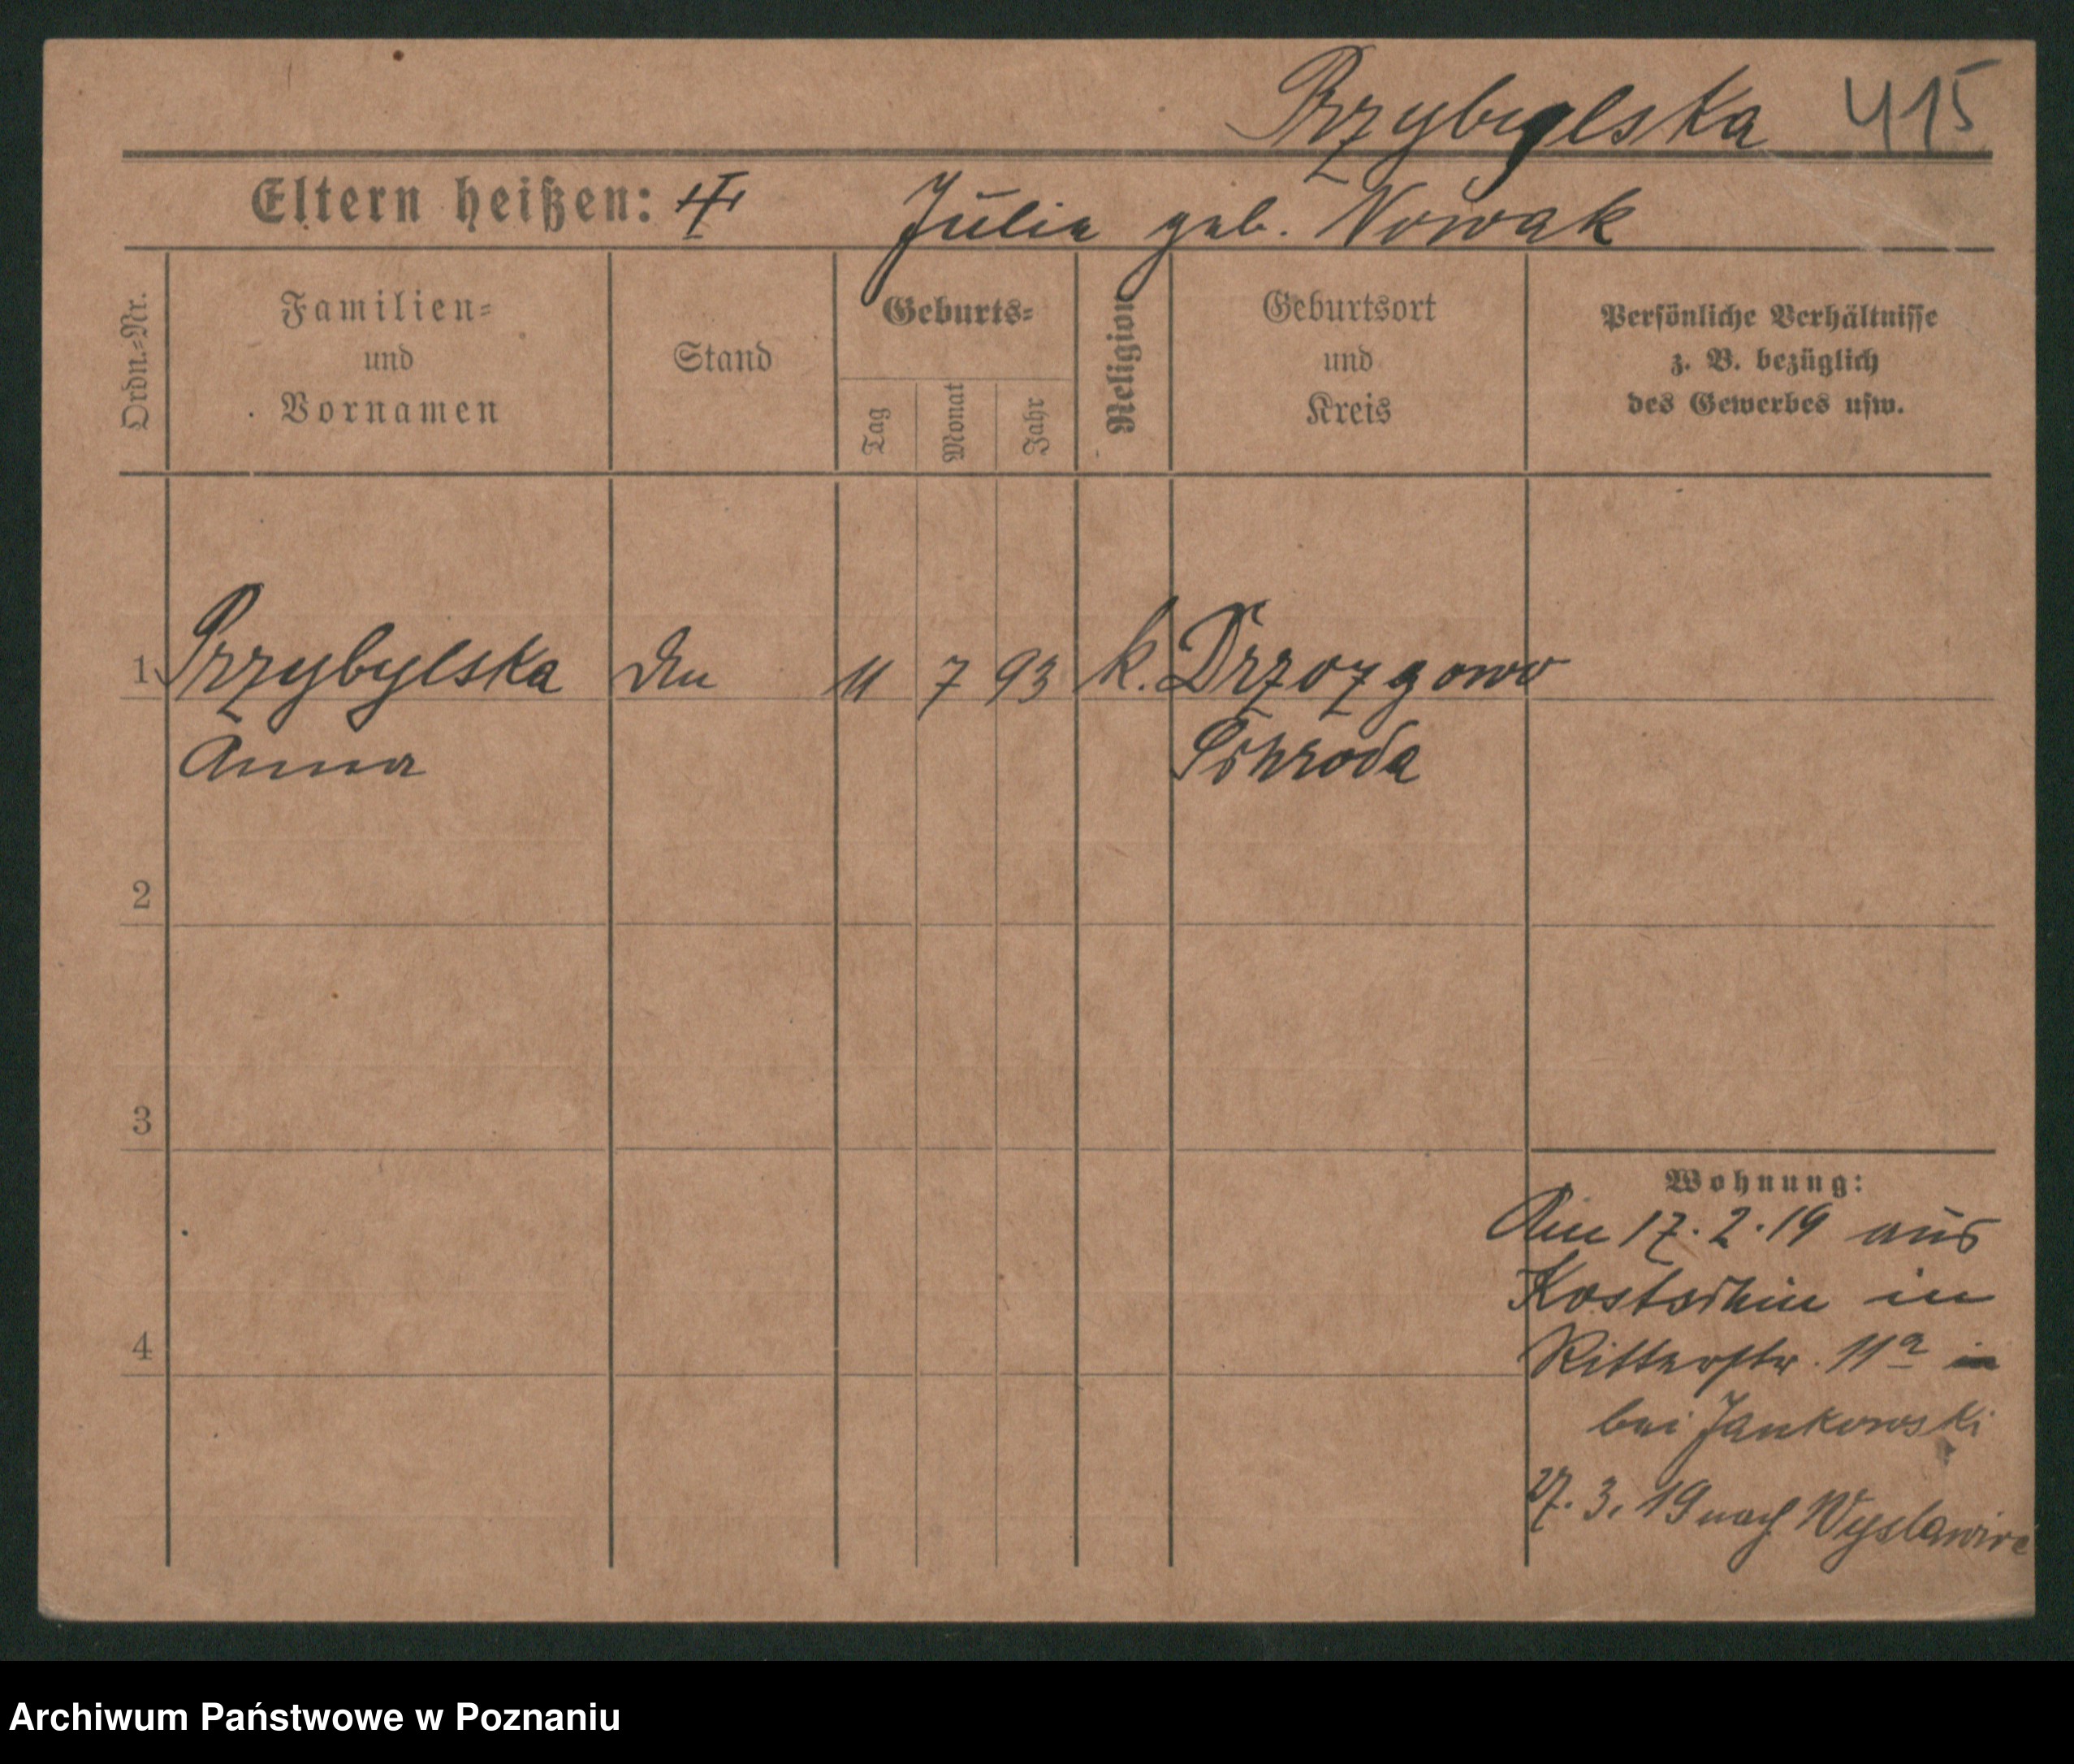 Przybylska 415
Eltern heißen: Julia geb. Nowak
Ordn.-Nr.
Familien-
und
Vornamen
Stand
Geburts-
Tag
Monat
Jahr
Religion
Geburtsort
und
Kreis
Persönliche Verhältnisse
z. B. bezüglich
des Gewerbes usw.
1 Przybylska 11 7 93 k. Drzozgowo
Anna Schroda
2
3
4
Wohnung:
Am 17.2.19 aus
Kostschin in
Ritterstr. 11a
bei Jankowski
27.3.19 nach
Archiwum Państwowe w Poznaniu